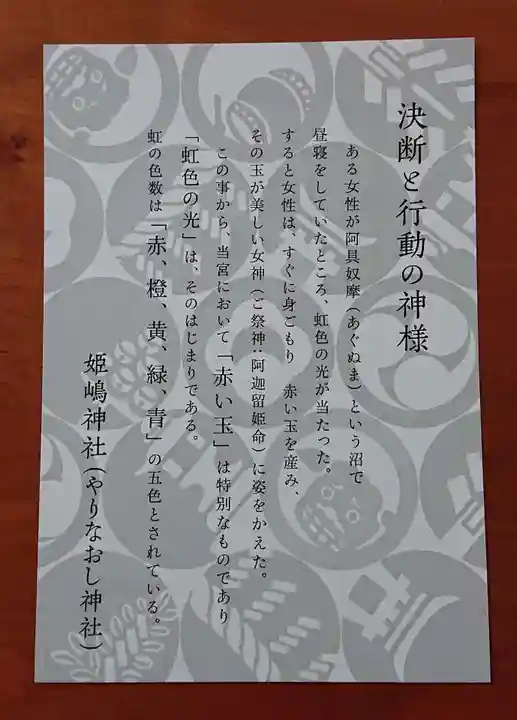 決断と行動の神様
ある女性が阿具奴摩(あぐぬま)という沼で
昼寝をしていたところ、虹色の光が当たった。
すると女性は、すぐに身ごもり 赤い玉を産み、
その玉が美しい女神(ご祭神:阿迦留姫命)に姿をかえた。
この事から、当宮において「赤い玉」は特別なものであり
「虹色の光」は、そのはじまりである。
虹の色数は「赤、橙、黄、緑、青」の五色とされている。
姫嶋神社(やりなおし神社)